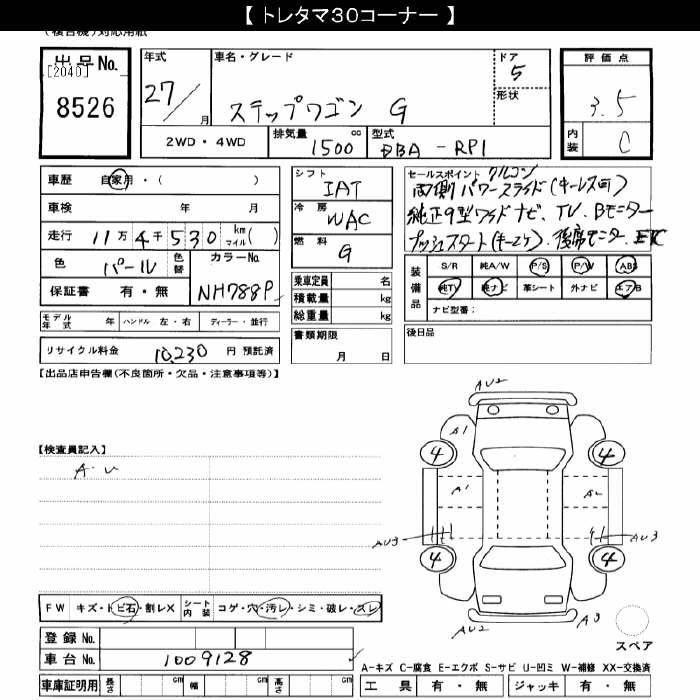 【 トレタマ30コーナー 】
(複合機)対応用紙
出品No.
[2040]
8526
年式
27/
月
車名・グレード
ステップワゴン G
ドア
5
形状
評価点
3.5
内装
C
2WD・4WD
排気量
1500
cc
型式
DBA - RP1
車歴
自家用・( )
車検
年 月
走行
11万4千530 km マイル( )
色
パール
色替
カラーNo.
NH788P
保証書 有・無
モデル年式 年
ハンドル 左・右
ディーラー・並行
リサイクル料金
10,230 円 預託済
シフト
IAT
冷房
WAC
燃料
G
乗車定員 名
積載量 kg
総重量 kg
書類期限
月 日
セールスポイント クルコン
両側パワースライド(キーレス可)
純正9型ワイドナビ、TV、Bモニター
プッシュスタート(キー2ケ)、後席モニター、ETC
装備品
S/R 純A/W P/S P/W ABS
純TV 純ナビ 革シート 外ナビ エアB
ナビ型番:
後日品
【出品店申告欄(不良箇所・欠品・注意事項等)】
【検査員記入】
A・U
AU2
A1
4
4
A1
A2
AU3
AU3
4
4
AU2
A3
スペア
FW キズ・トビ石・割レX
シート内装 コゲ・穴・汚レ・シミ・破レ・スレ
登録No.
車台No.
1009128
車庫証明用
長さ cm
幅 cm
高さ cm
A-キズ C-腐食 E-エクボ S-サビ U-凹ミ W-補修 XX-交換済
工具 有・無
ジャッキ 有・無